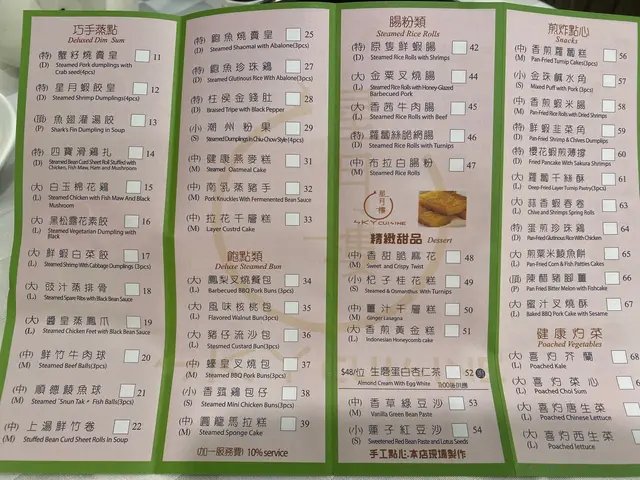 巧手蒸點
Deluxed Dim Sum
(特) 蟹籽燒賣皇 11
(D) Steamed Pork dumplings with
Crab seed(4pcs)
(特) 星月蝦餃皇 12
(D) Steamed Shrimp Dumplings(4pcs)
(頂) 魚翅灌湯餃 13
(P) Shark's Fin Dumpling in Soup
(特) 四寶滑雞扎 14
(D) Steamed Bean Curd Sheet Roll Stuffed with
Chicken, Fish Maw, Ham and Mushroom
(大) 白玉棉花雞 15
(L) Steamed Chicken with Fish Maw And Black
Mushroom
(大) 黑松露花素餃 16
(L) Steamed Vegetarian Dumpling with
Black
(大) 鮮蝦白菜餃 17
(L) Steamed Shrimp With Cabbage Dumplings (3pcs)
(大) 豉汁蒸排骨 18
(L) Steamed Spare Ribs with Black Bean Sauce
(大) 醬皇蒸鳳爪 19
(L) Steamed Chicken Feet with Black Bean Sauce
(中) 鮮竹牛肉球 20
(M) Steamed Beef Balls(3pcs)
(中) 順德鯪魚球 21
(M) Steamed "Snun Tak" Fish Balls(3pcs)
(中) 上湯鮮竹卷 22
(M) Stuffed Bean Curd Sheet Rolls in Soup
(特) 鮑魚燒賣皇 25
(D) Steamed Shaomai with Abalone(3pcs)
(特) 鮑魚珍珠雞 27
(D) Steamed Glutinous Rice With Abalone(3pcs)
(特) 柱侯金錢肚 28
(D) Braised Tripe with Black Pepper
(小) 潮州粉果 29
(S) Steamed Dumplings in Chiu Chow Style (4pcs)
(中) 健康燕麥糕 31
(M) Steamed Oatmeal Cake
(中) 南乳蒸豬手 32
(M) Pork Knuckles With Fermented Bean Sauce
(中) 拉花千層糕 33
(M) Layer Custrd Cake
飽點類
Deluxe Steamed Bun
(大) 鳳梨叉燒餐包 34
(L) Barbecued BBQ Pork Buns (3pcs)
(大) 風味核桃包 35
(L) Flavored Walnut Bun(3pcs)
(大) 豬仔流沙包 36
(L) Steamed Custard Bun(3pcs)
(中) 蠔皇叉燒包 37
(M) Steamed BBQ Pork Buns(3pcs)
(小) 香菇雞包仔 38
(S) Steamed Mini Chicken Buns(3pcs)
(中) 圓龍馬拉糕 39
(M) Steamed Sponge Cake
(加一服務費) 10% service
腸粉類
Steamed Rice Rolls
(特) 原隻鮮蝦腸 42
(D) Steamed Rice Rolls with Shrimps
(大) 金菜叉燒腸 44
(L) Steamed Rice Rolls with Honey-Glazed
Barbecued Pork
(大) 香茜牛肉腸 45
(L) Steamed Rice Rolls with Beef
(特) 蘿蔔絲脆網腸 46
(D) Steamed Rice Rolls with Turnips
(中) 布拉白腸粉 47
(M) Steamed Rice Rolls
星月樓
SKY CUISINE
精緻甜品 Dessert
(中) 香甜脆麻花 48
(M) Sweet and Crispy Twist
(小) 杞子桂花糕 49
(S) Steamed & Osmanthus With Turnips
(中) 薑汁千層糕 50
(M) Ginger Lasagna
(大) 香煎黃金糕 51
(L) Indonesian Honeycomb cake
$48/位 生磨蛋白杏仁茶 52
Almond Cream With Egg White
(中) 香草綠豆沙 53
(M) Vanilla Green Bean Paste
(小) 蓮子紅豆沙 54
(S) Sweetened Red Bean Paste and Lotus Seeds
手工點心:本店現場製作
煎炸點心
Snacks
(中) 香煎蘿蔔糕 56
(M) Pan-Fried Turnip Cakes(3pcs)
(小) 金珠鹹水角 57
(S) Mixed Puff with Pork (3pcs)
(中) 香煎蝦米腸 58
(M) Pan-Fried Rice Rolls with Dried Shrimps
(特) 鮮蝦韮菜角 59
(D) Pan-Fried Shrimp & Chives Dumplips
(特) 櫻花蝦煎薄撐 60
(D) Fried Pancake With Sakura Shrimps
(大) 蘿蔔千絲酥 61
(L) Deep-Fried Layer Turnip Pastry(3pcs)
(大) 蒜香蝦春卷 63
(L) Chive and Shrimps Spring Rolls
(特) 蛋煎珍珠雞 64
(D) Pan-Fried Glutinous Rice With Chicken
(大) 煎粟米鯪魚餅 65
(L) Pan-Fried Corn & Fish Patties Cakes
(頂) 陳醋豬腳薑 66
(P) Pan Fried Bitter Melon with Fishcake
(大) 蜜汁叉燒酥 67
(L) Baked BBQ Pork Cake with Sesame
健康灼菜
Poached Vegetables
(大) 喜灼芥蘭 68
(L) Poached Kale
(大) 喜灼菜心
(L) Poached Choi Sum
(大) 喜灼唐生菜
(L) Poached Chinese Lettuce
(大) 喜灼西生菜
(L) Poached lettuce